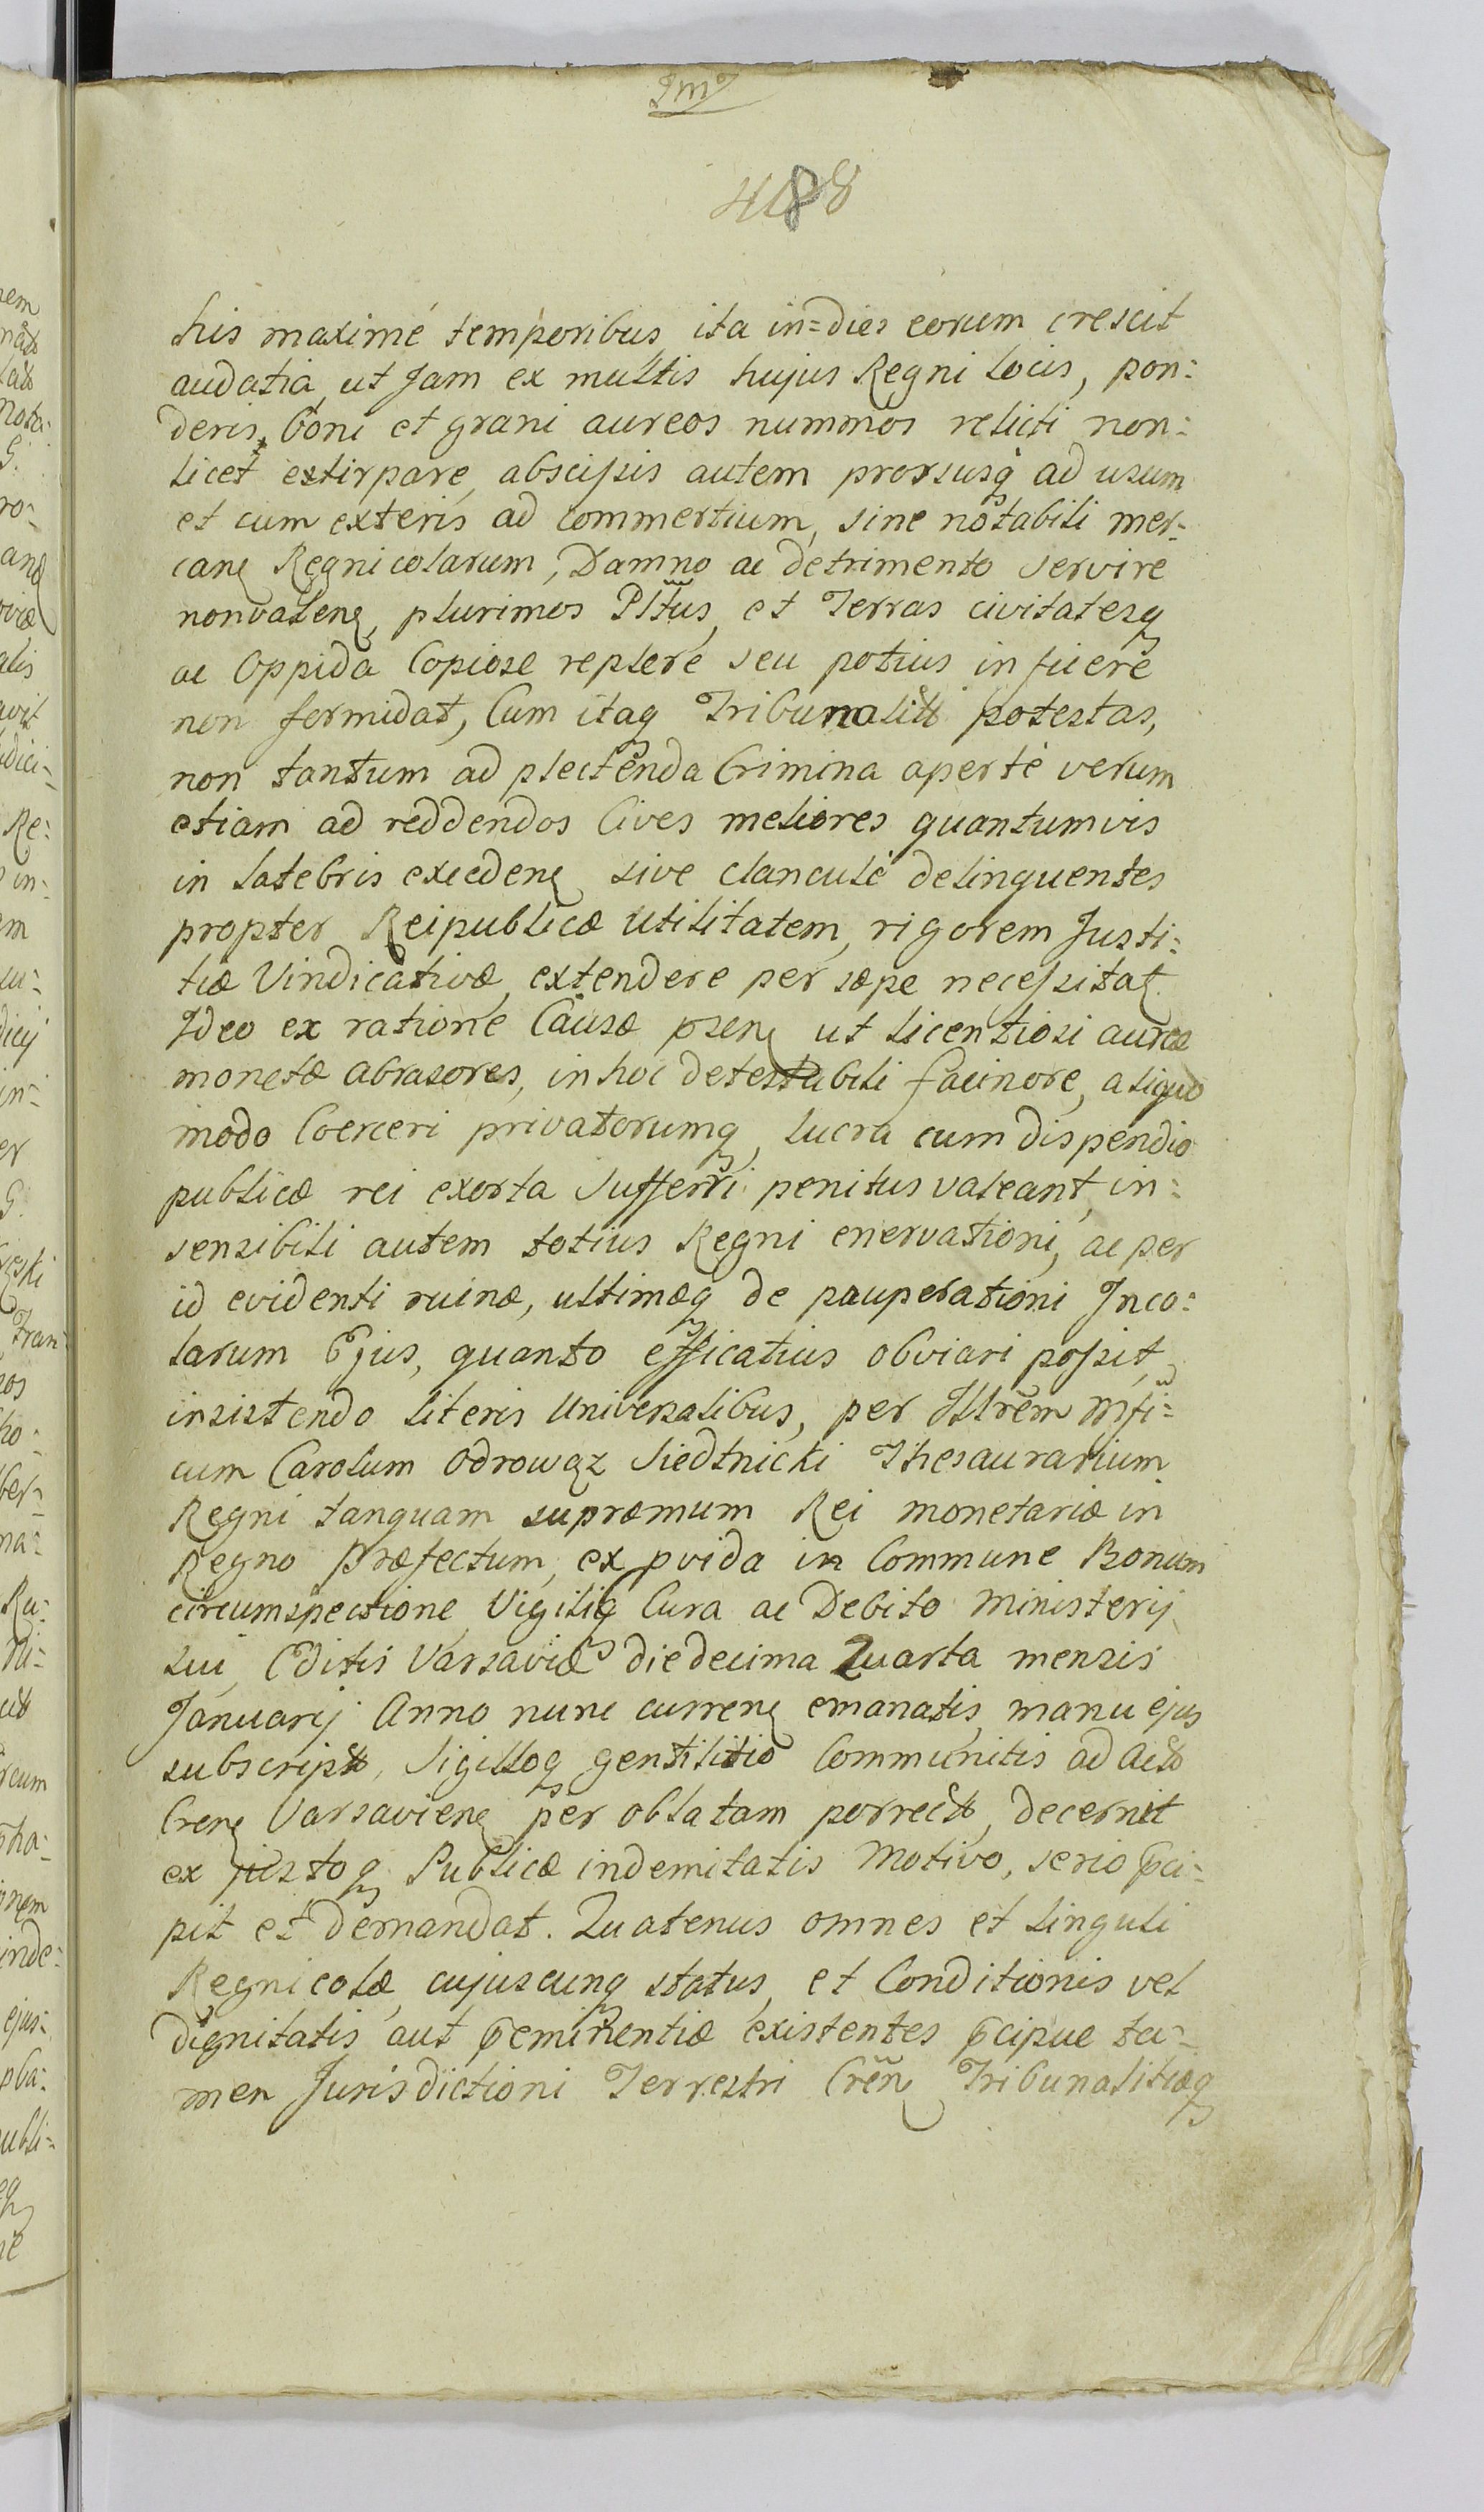 488
his maximé temporibus, ita in=dies eorum crescit
audatia, ut Jam ex multis hujus Regni Locis, pon:
deris, boni et grani aureos nummos relicti non:
licet extirpare, abscissis autem prorsusq ad usum
et cum exteris ad commertium, sine notabili mer:
cane Regnicolarum, Damno ac detrimento servire
nonvalene, plurimos Plttus, et Terras civitatesq
ac Oppida Copiose replere seu potius inficere
non formidat, Cum itaq Tribunalit potestas,
non tantum ad plectenda Crimina aperté verum
etiam ad reddendos Cives meliores quantumvis
in latebris excedene sive clanculé delinquentes
propter Reipublicæ Utilitatem, rigorem Justi:
tiæ Vindicativæ, extendere per sæpe necessitat
Ideo ex ratione Causæ psene ut licentiosi aureæ
monetæ abrasores, in hoc detestabili facinore, aliquo
modo Coerceri privatorumq, lucra cum dispendio
publicæ rei exorta sufferri penitus valeant, in:
sensibili autem totius Regni enervationi, ac per
id evidenti ruinæ, ultimæq de pauperationi Inco:
larum Ejus, quanto efficatius obviari possit,
insistendo literis Universalibus, per Illrem Mfi:
cum Carolum Odrowąz Siedlnicki Thesaurarium
Regni tanquam supræmum Rei monetariæ in
Regno Præfectum, ex pvida in Commune Bonum
circumspectione, Vigiliq Cura ac Debito Ministerij
sui, Editis Varsaviæ die decima Quarta mensis
Januarij Anno nunc currene emanatis, manu ejus
subscript, Sigilloq gentilitio Communitis ad Act
Crene Varsaviene per oblatam porrect, decernit
ex justoq Publicæ indemitatis Motivo, serio pci:
pit et demandat. Quatenus omnes et singuli
Regnicolæ, cujuscunq status, et Conditionis vel
dignitatis aut peminentiæ existentes pcipue ta:
men Jurisdictioni Terrestri Crene Tribunalitiæq